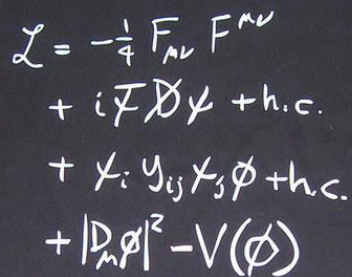 ℒ = -¼ F_{μν} F^{μν}
+ i ψ̄ D̸ ψ + h.c.
+ ψ_i y_{ij} ψ_j φ + h.c.
+ |D_μ φ|² - V(φ)